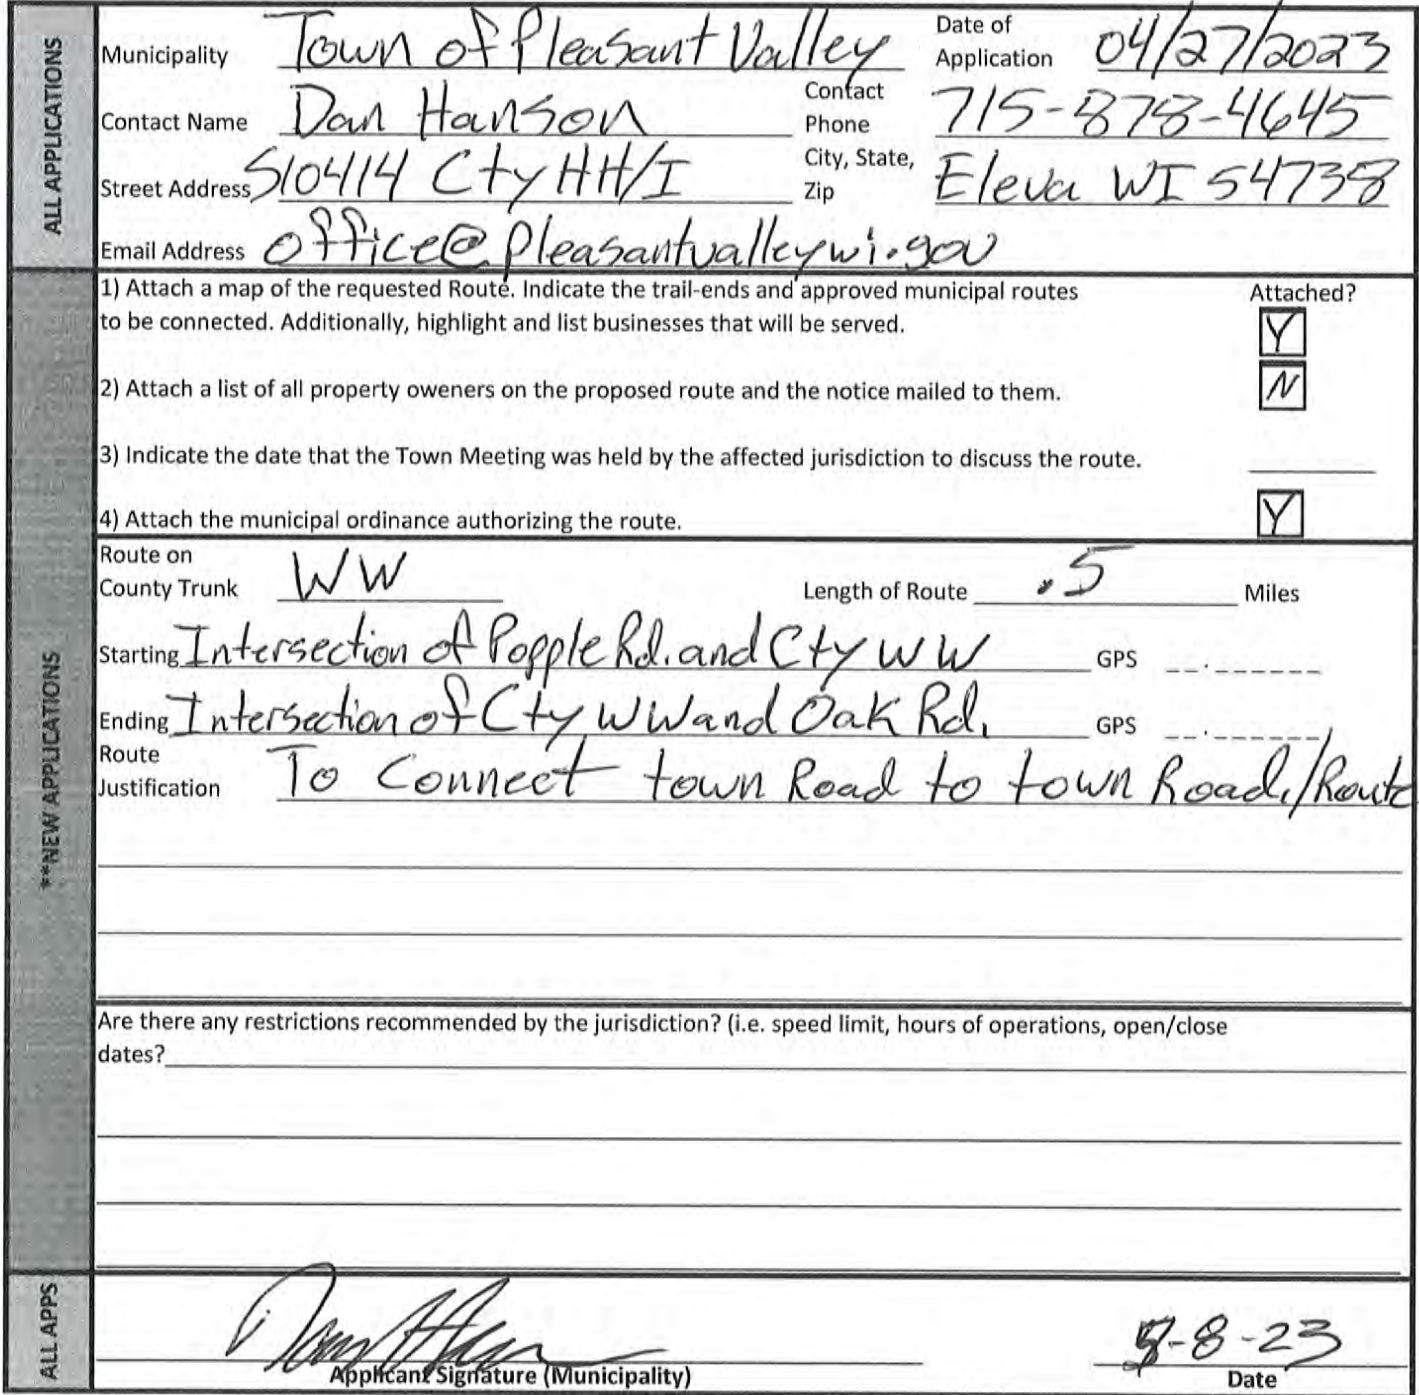 ALL APPLICATIONS
Municipality Town of Pleasant Valley Date of Application 04/27/2023
Contact Name Dan Hanson Contact Phone 715-878-4645
Street Address S10414 Cty HH/I City, State, Zip Eleva WI 54738
Email Address office@pleasantvalleywi.gov
**NEW APPLICATIONS
1) Attach a map of the requested Route. Indicate the trail-ends and approved municipal routes Attached?
to be connected. Additionally, highlight and list businesses that will be served. Y
2) Attach a list of all property oweners on the proposed route and the notice mailed to them. N
3) Indicate the date that the Town Meeting was held by the affected jurisdiction to discuss the route.
4) Attach the municipal ordinance authorizing the route. Y
Route on County Trunk WW Length of Route .5 Miles
Starting Intersection of Popple Rd. and Cty WW GPS __.______
Ending Intersection of Cty WW and Oak Rd. GPS __.______
Route Justification To Connect town Road to town Road./Route
Are there any restrictions recommended by the jurisdiction? (i.e. speed limit, hours of operations, open/close
dates?
ALL APPS
Applicant Signature (Municipality) -8-23
Date